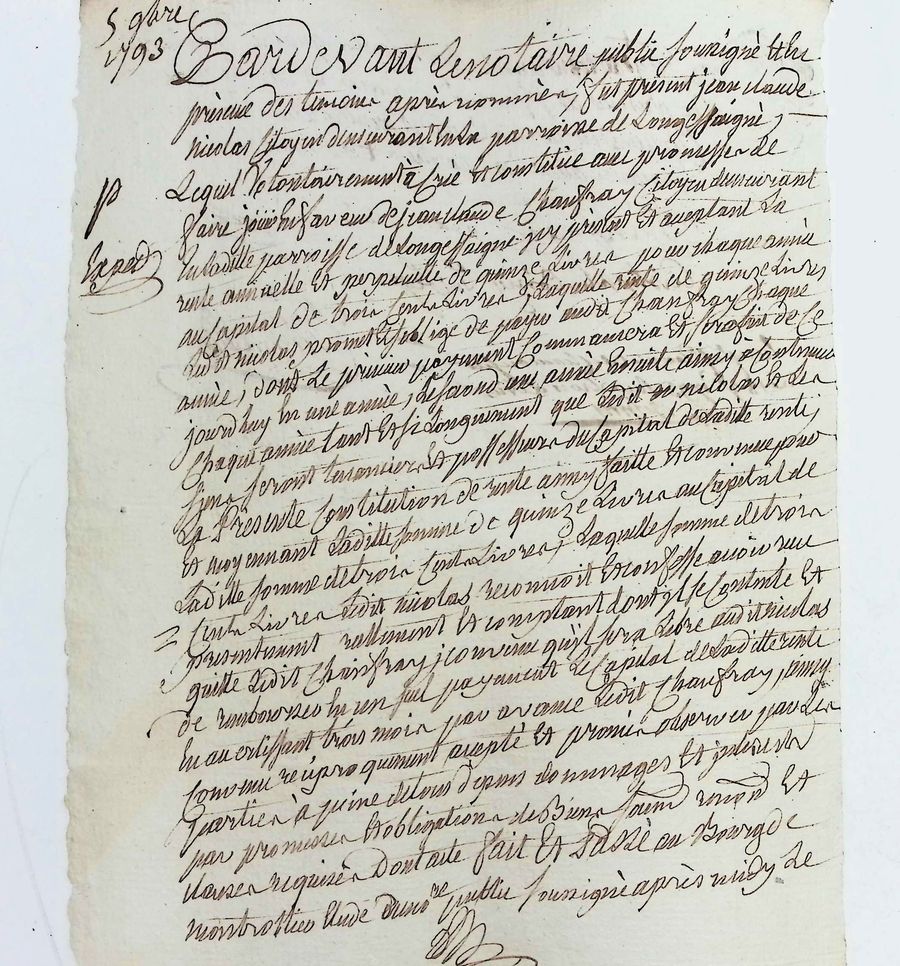 5 9bre
1793
Pardevant Le notaire public soussigné et en
presence des temoins après nommés, fut présent jean claude
nicolas Citoyen demeurant en La parroisse de Longessaigne,
Lequel Volontairement à Créé et constitué avec promesse de
p
faire jouir en faveur de jean claude Chanfray Citoyen demeurant
Exped
en ladite parroisse de Longessaigne ycy present et aceptant La
rente annuelle et perpetuelle de quinze Livres pour chaque année
au Capital de trois Cents Livres; Laquelle rente de quinze Livres
Led et nicolas promet et soblige de payer audit Chanfray Chaque
année, dont Le premier payement Commancera et se fera de Ce
jourdhuy en une année, Le second une année ensuite ainsy à Continuer
Chaque année tant et si Longuement que Ledit nicolas et Les
siens seront tenanciers et possesseurs du Capital de Ladite rente;
La Presente Constitution de rente ainsy faitte et convenue pour
et moyennant Ladite somme de quinze Livres au Capital de
Ladite somme de trois Cents Livres; Laquelle somme de trois
= Cents Livres Ledit nicolas reconnoit et confesse avoir reçu
presentement reellement et comptant dont il se Contente et
quitte Ledit Chanfray; convenu qu'il sera Libre audit nicolas
de rembourser en un seul payement Le Capital de Ladite rente
en avertissant trois mois par avance Ledit Chanfray, ainsy
Convenu reciproquement acepté et promis observer par Les
parties à peine de tous depens dommages et interests
par promesses et obligations de Biens soumⁿ renonⁿ et
clauses requises dont acte fait et Passé au Bourg de
montrottier Etude du noʳᵉ public soussigné après midy Le